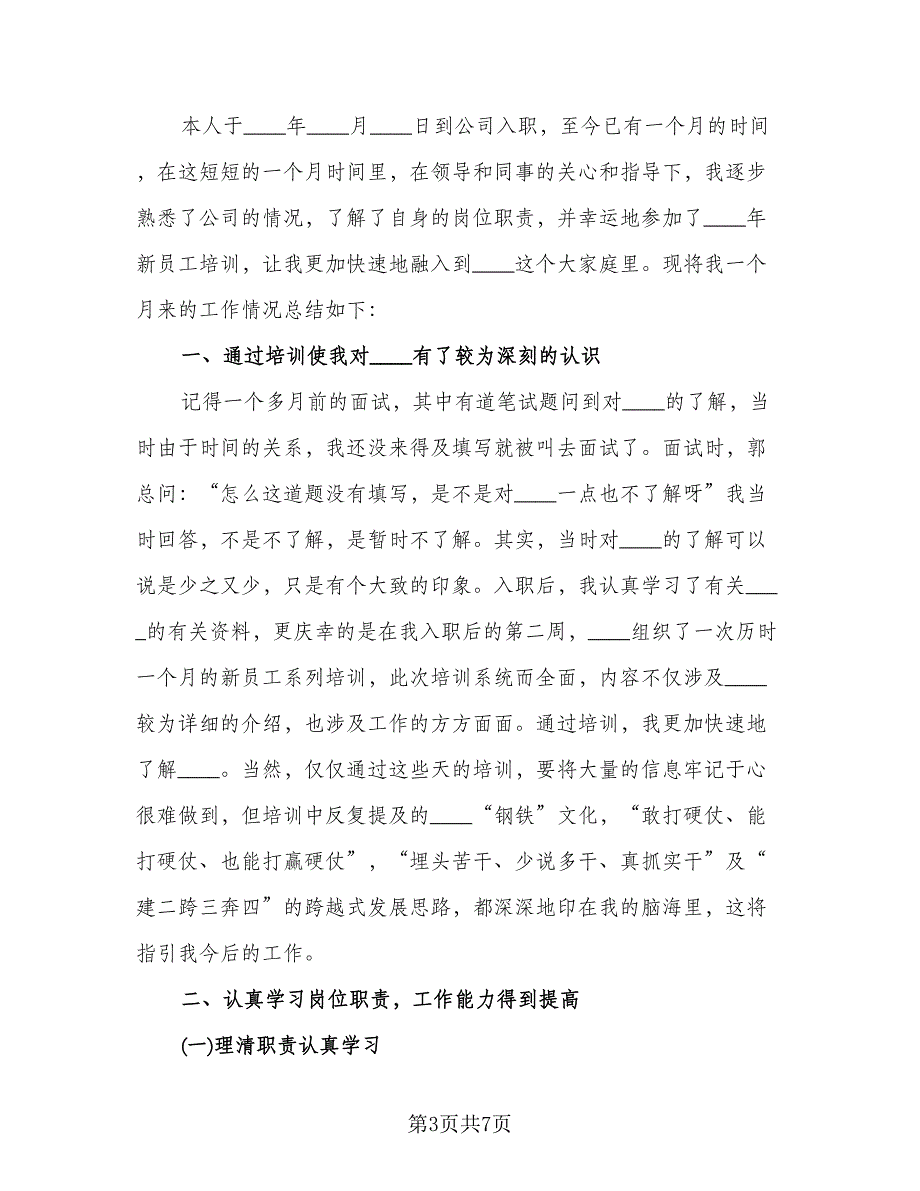 本人于____年____月____日到公司入职，至今已有一个月的时间
，在这短短的一个月时间里，在领导和同事的关心和指导下，我逐步
熟悉了公司的情况，了解了自身的岗位职责，并幸运地参加了____年
新员工培训，让我更加快速地融入到____这个大家庭里。现将我一个
月来的工作情况总结如下：
一、通过培训使我对____有了较为深刻的认识
记得一个多月前的面试，其中有道笔试题问到对____的了解，当
时由于时间的关系，我还没来得及填写就被叫去面试了。面试时，郭
总问：“怎么这道题没有填写，是不是对____一点也不了解呀”我当
时回答，不是不了解，是暂时不了解。其实，当时对____的了解可以
说是少之又少，只是有个大致的印象。入职后，我认真学习了有关___
_的有关资料，更庆幸的是在我入职后的第二周，____组织了一次历时
一个月的新员工系列培训，此次培训系统而全面，内容不仅涉及____
较为详细的介绍，也涉及工作的方方面面。通过培训，我更加快速地
了解____。当然，仅仅通过这些天的培训，要将大量的信息牢记于心
很难做到，但培训中反复提及的____“钢铁”文化，“敢打硬仗、能
打硬仗、也能打赢硬仗”，“埋头苦干、少说多干、真抓实干”及“
建二跨三奔四”的跨越式发展思路，都深深地印在我的脑海里，这将
指引我今后的工作。
二、认真学习岗位职责，工作能力得到提高
(一)理清职责认真学习
第3页共7页